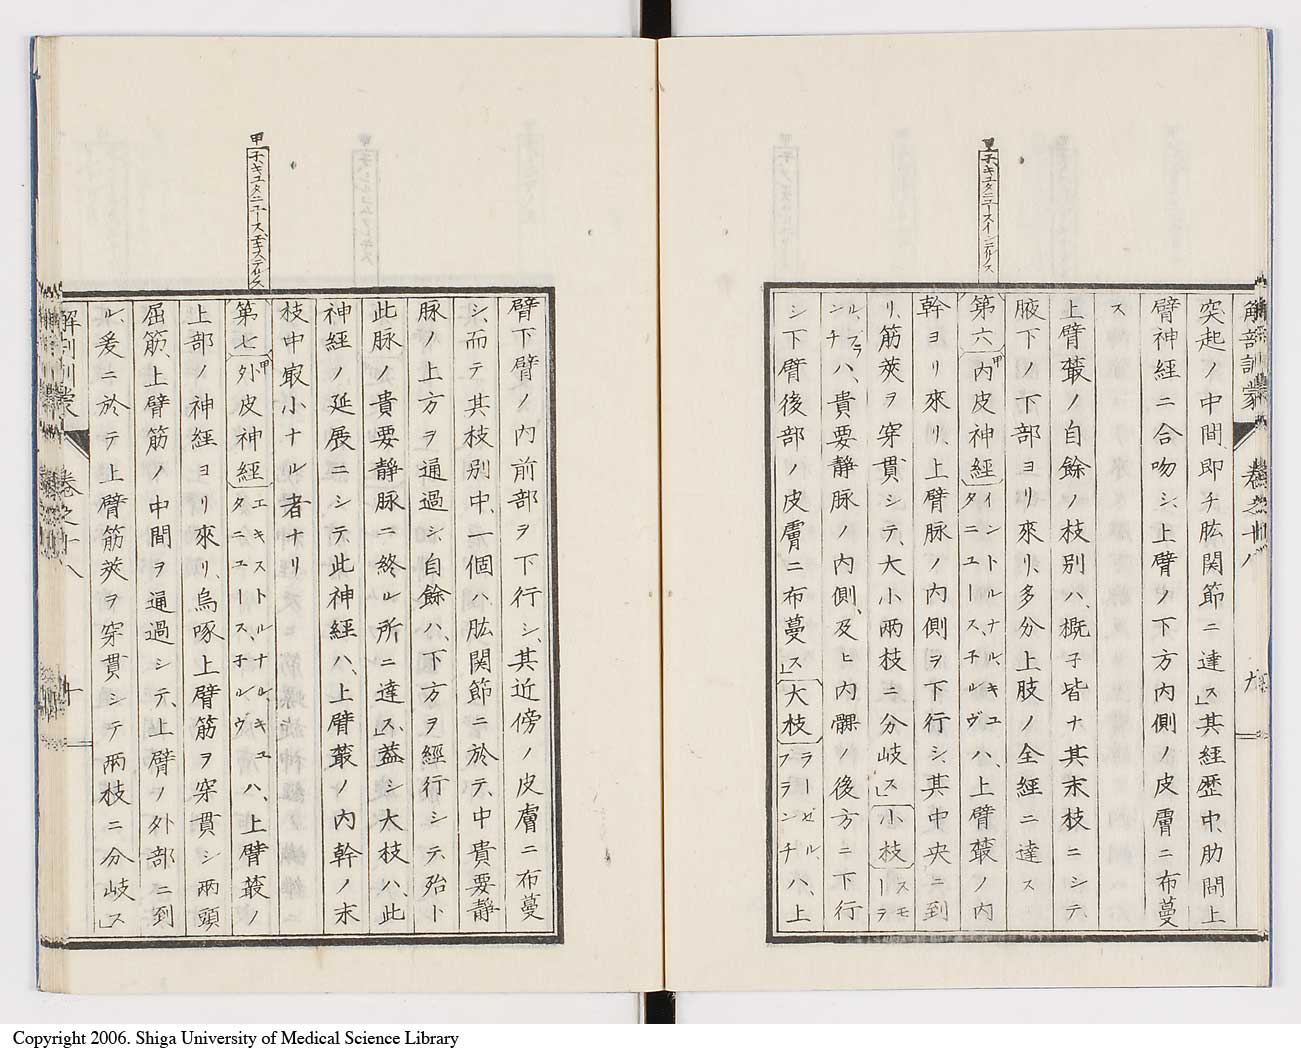 甲 子、キュタニュースインテルノス
解剖訓蒙 卷之十八 九
突起ノ中間、即チ肱関節ニ達ス」其経歴中、肋間上
臂神經ニ合吻シ、上臂ノ下方内側ノ皮膚ニ布蔓
ス
上臂叢ノ自餘ノ枝別ハ、概子皆ナ其末枝ニシテ、
腋下ノ下部ヨリ來リ、多分上肢ノ全經ニ達ス
第六 甲 内皮神經 イントルナル、キュタニュース、子ルヴ ハ、上臂叢ノ内
幹ヨリ來リ、上臂脉ノ内側ヲ下行シ、其中央ニ到
リ、筋莢ヲ穿貫シテ、大小両枝ニ分岐ス」小枝 スモーラル、ブランチ ハ、貴要静脉ノ内側、及ヒ内髁ノ後方ニ下行
シ下臂後部ノ皮膚ニ布蔓ス」大枝 ラーゼル、ブランチ ハ、上
甲 子、キュタニュースエキステルノス
臂下臂ノ内前部ヲ下行シ、其近傍ノ皮膚ニ布蔓
シ、而テ其枝別中、一個ハ、肱関節ニ於テ、中貴要静
脉ノ上方ヲ通過シ、自餘ハ、下方ヲ經行シテ、殆ト
此脉ノ貴要静脉ニ終ル所ニ達ス」葢シ大枝ハ、此
神經ノ延展ニシテ、此神經ハ、上臂叢ノ内幹ノ末
枝中㝡小ナル者ナリ
第七 甲 外皮神經 エキストルナル、キュタニュース、子ルヴ ハ、上臂叢ノ
上部ノ神經ヨリ來リ、烏啄上臂筋ヲ穿貫シ両頭
屈筋、上臂筋ノ中間ヲ通過シテ、上臂ノ外部ニ到
ル、爰ニ於テ上臂筋莢ヲ穿貫シテ両枝ニ分岐ス」
解剖訓蒙 卷之十八 十
Copyright 2006. Shiga University of Medical Science Library